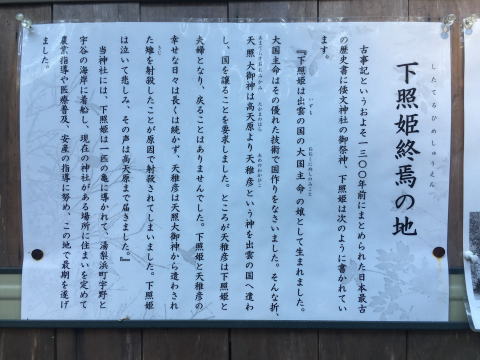 したてるひめしゅうえん
下照姫終焉の地
古事記というおよそ一三〇〇年前にまとめられた日本最古
の歴史書に倭文神社の御祭神、下照姫は次のように書かれてい
ます。
いずも
おおくにぬしのみこと
『下照姫は出雲の国の大国主命の娘として生まれました。
大国主命はその優れた技術で国作りをなさいました。そんな折、
あまてらすおおみかみ
たかまのはら
あめのわかひこ
天照大御神は高天原より天稚彦という神を出雲の国へ遣わ
し、国を譲ることを要求しました。ところが天稚彦は下照姫と
夫婦となり、戻ることはありませんでした。下照姫と天稚彦の
幸せな日々は長くは続かず、天稚彦は天照大御神から遣わされ
きじ
た雉を射殺したことが原因で射殺されてしまいました。下照姫
は泣いて悲しみ、その声は高天原まで届きました。』
当神社には、下照姫は一匹の亀に導かれて、湯梨浜町宇野と
宇谷の海岸に着船し、現在の神社がある場所に住まいを定めて
農業指導や医療普及、安産の指導に努め、この地で最期を遂げ
ました。